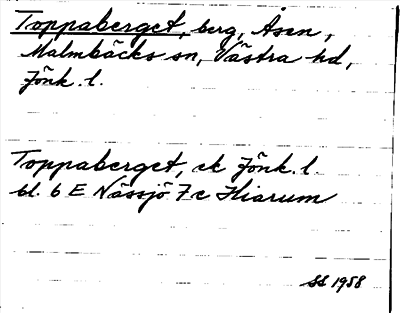 Toppaberget, berg, Åsen,
Malmbäcks sn, Västra hd,
Jönk. l.
Toppaberget, ek Jönk. l.
bl. 6 E Nässjö 7 c Hiarum
SS 1958